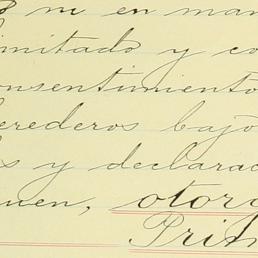 ni en man
imitado y co
nsentimiento
herederos bajo
s y declarac
uen, otorg
Prim